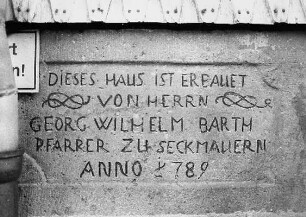 rt
n!
DIESES HAUS IST ERBAUET
VON HERRN
GEORG WILHELM BARTH
PFARRER ZU SECKMAUERN
ANNO 1789